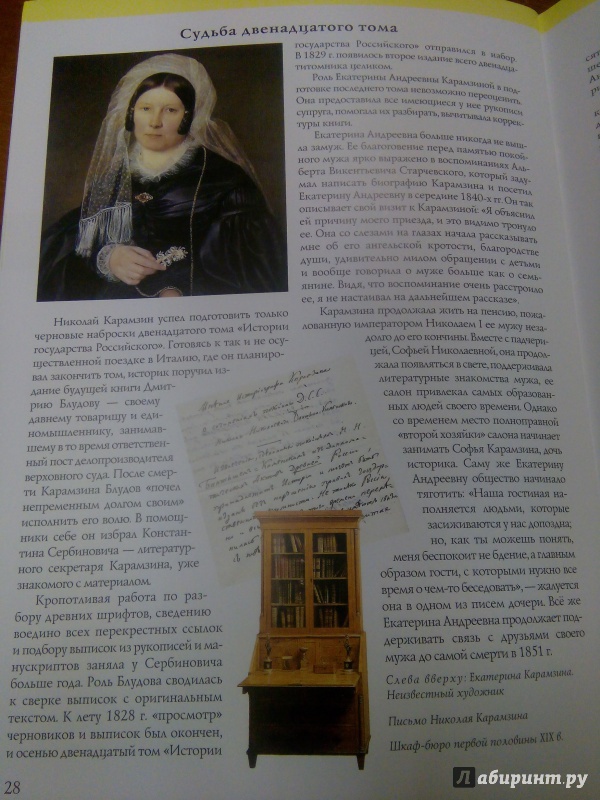 Судьба двенадцатого тома
Николай Карамзин успел подготовить только
черновые наброски двенадцатого тома «Истории
государства Российского». Готовясь к так и не осу-
ществленной поездке в Италию, где он планиро-
вал закончить том, историк поручил из-
дание будущей книги Дмит-
рию Блудову — своему
давнему товарищу и еди-
номышленнику, занимав-
шему в то время ответствен-
ный пост делопроизводителя
верховного суда. После смер-
ти Карамзина Блудов «почел
непременным долгом своим»
исполнить его волю. В помощ-
ники себе он избрал Констан-
тина Сербиновича — литератур-
ного секретаря Карамзина, уже
знакомого с материалом.
Кропотливая работа по раз-
бору древних шрифтов, сведению
воедино всех перекрестных ссылок
и подбору выписок из рукописей и ма-
нускриптов заняла у Сербиновича
больше года. Роль Блудова сводилась
к сверке выписок с оригинальным
текстом. К лету 1828 г. «просмотр»
черновиков и выписок был окончен,
и осенью двенадцатый том «Истории
28
государства Российского» отправился в набор.
В 1829 г. появилось второе издание всего двенадца-
титомника целиком.
Роль Екатерины Андреевны Карамзиной в под-
готовке последнего тома невозможно переоценить.
Она предоставила все имеющиеся у нее рукописи
супруга, помогала их разбирать, вычитывала коррек-
туры книги.
Екатерина Андреевна больше никогда не вы-
шла замуж. Ее благоговение перед памятью покой-
ного мужа ярко выражено в воспоминаниях Аль-
берта Викентьевича Старчевского, который заду-
мал написать биографию Карамзина и посетил
Екатерину Андреевну в середине 1840-х гг. Он так
описывает свой визит к Карамзиной: «Я объяснил
ей причину моего приезда, и это видимо тронуло
ее. Она со слезами на глазах начала рассказывать
мне об его ангельской кротости, благородстве
души, удивительно милом обращении с детьми
и вообще говорила о муже больше как о семь-
янине. Видя, что воспоминание очень расстроило
ее, я не настаивал на дальнейшем рассказе».
Карамзина продолжала жить на пенсию, пожа-
лованную императором Николаем I ее мужу неза-
долго до его кончины. Вместе с падчери-
цей, Софьей Николаевной, она продол-
жала появляться в свете, поддерживала
литературные знакомства мужа, ее
салон привлекал самых образован-
ных людей своего времени. Однако
со временем место полноправной
«второй хозяйки» салона начинает
занимать Софья Карамзина, дочь
историка. Саму же Екатерину
Андреевну общество начинало
тяготить: «Наша гостиная на-
полняется людьми, которые
засиживаются у нас допоздна;
но, как ты можешь понять,
меня беспокоит не бдение, а главным
образом гости, с которыми нужно все
время о чем-то беседовать», — жалуется
она в одном из писем дочери. Всё же
Екатерина Андреевна продолжает под-
держивать связь с друзьями своего
мужа до самой смерти в 1851 г.
Слева вверху: Екатерина Карамзина.
Неизвестный художник
Письмо Николая Карамзина
Шкаф-бюро первой половины XIX в.
Лабиринт.ру